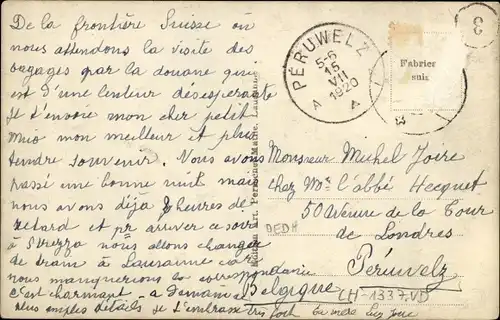 De la frontière Suisse où
nous attendons la visite des
bagages par la douane qui
est d'une lenteur désespérante
je t'envoie mon cher petit
mio mon meilleur et plus
tendre souvenir. Vous avons
passé une bonne nuit mais
nous avons déjà 2 heures de
retard et pr arriver ce soir
à Strezza nous allons changer
de tram à Lausanne car
nous manquerions la correspondance
c'est charmant - à demain
plus amples détails Je t'embrasse très fort
PÉRUWELZ
5-6
15
VII
1920
A A
Fabrier
suis
3
Monsieur Michel Joire
chez Mr l'abbé Hecquet
50 Avenue de la Tour
de Londres
Péruwelz
Belgique
DEDH
LH-1337.VD